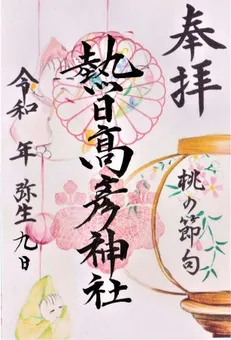 奉拝
桃の節句
熱日高彦神社
令和 年 弥生 九日